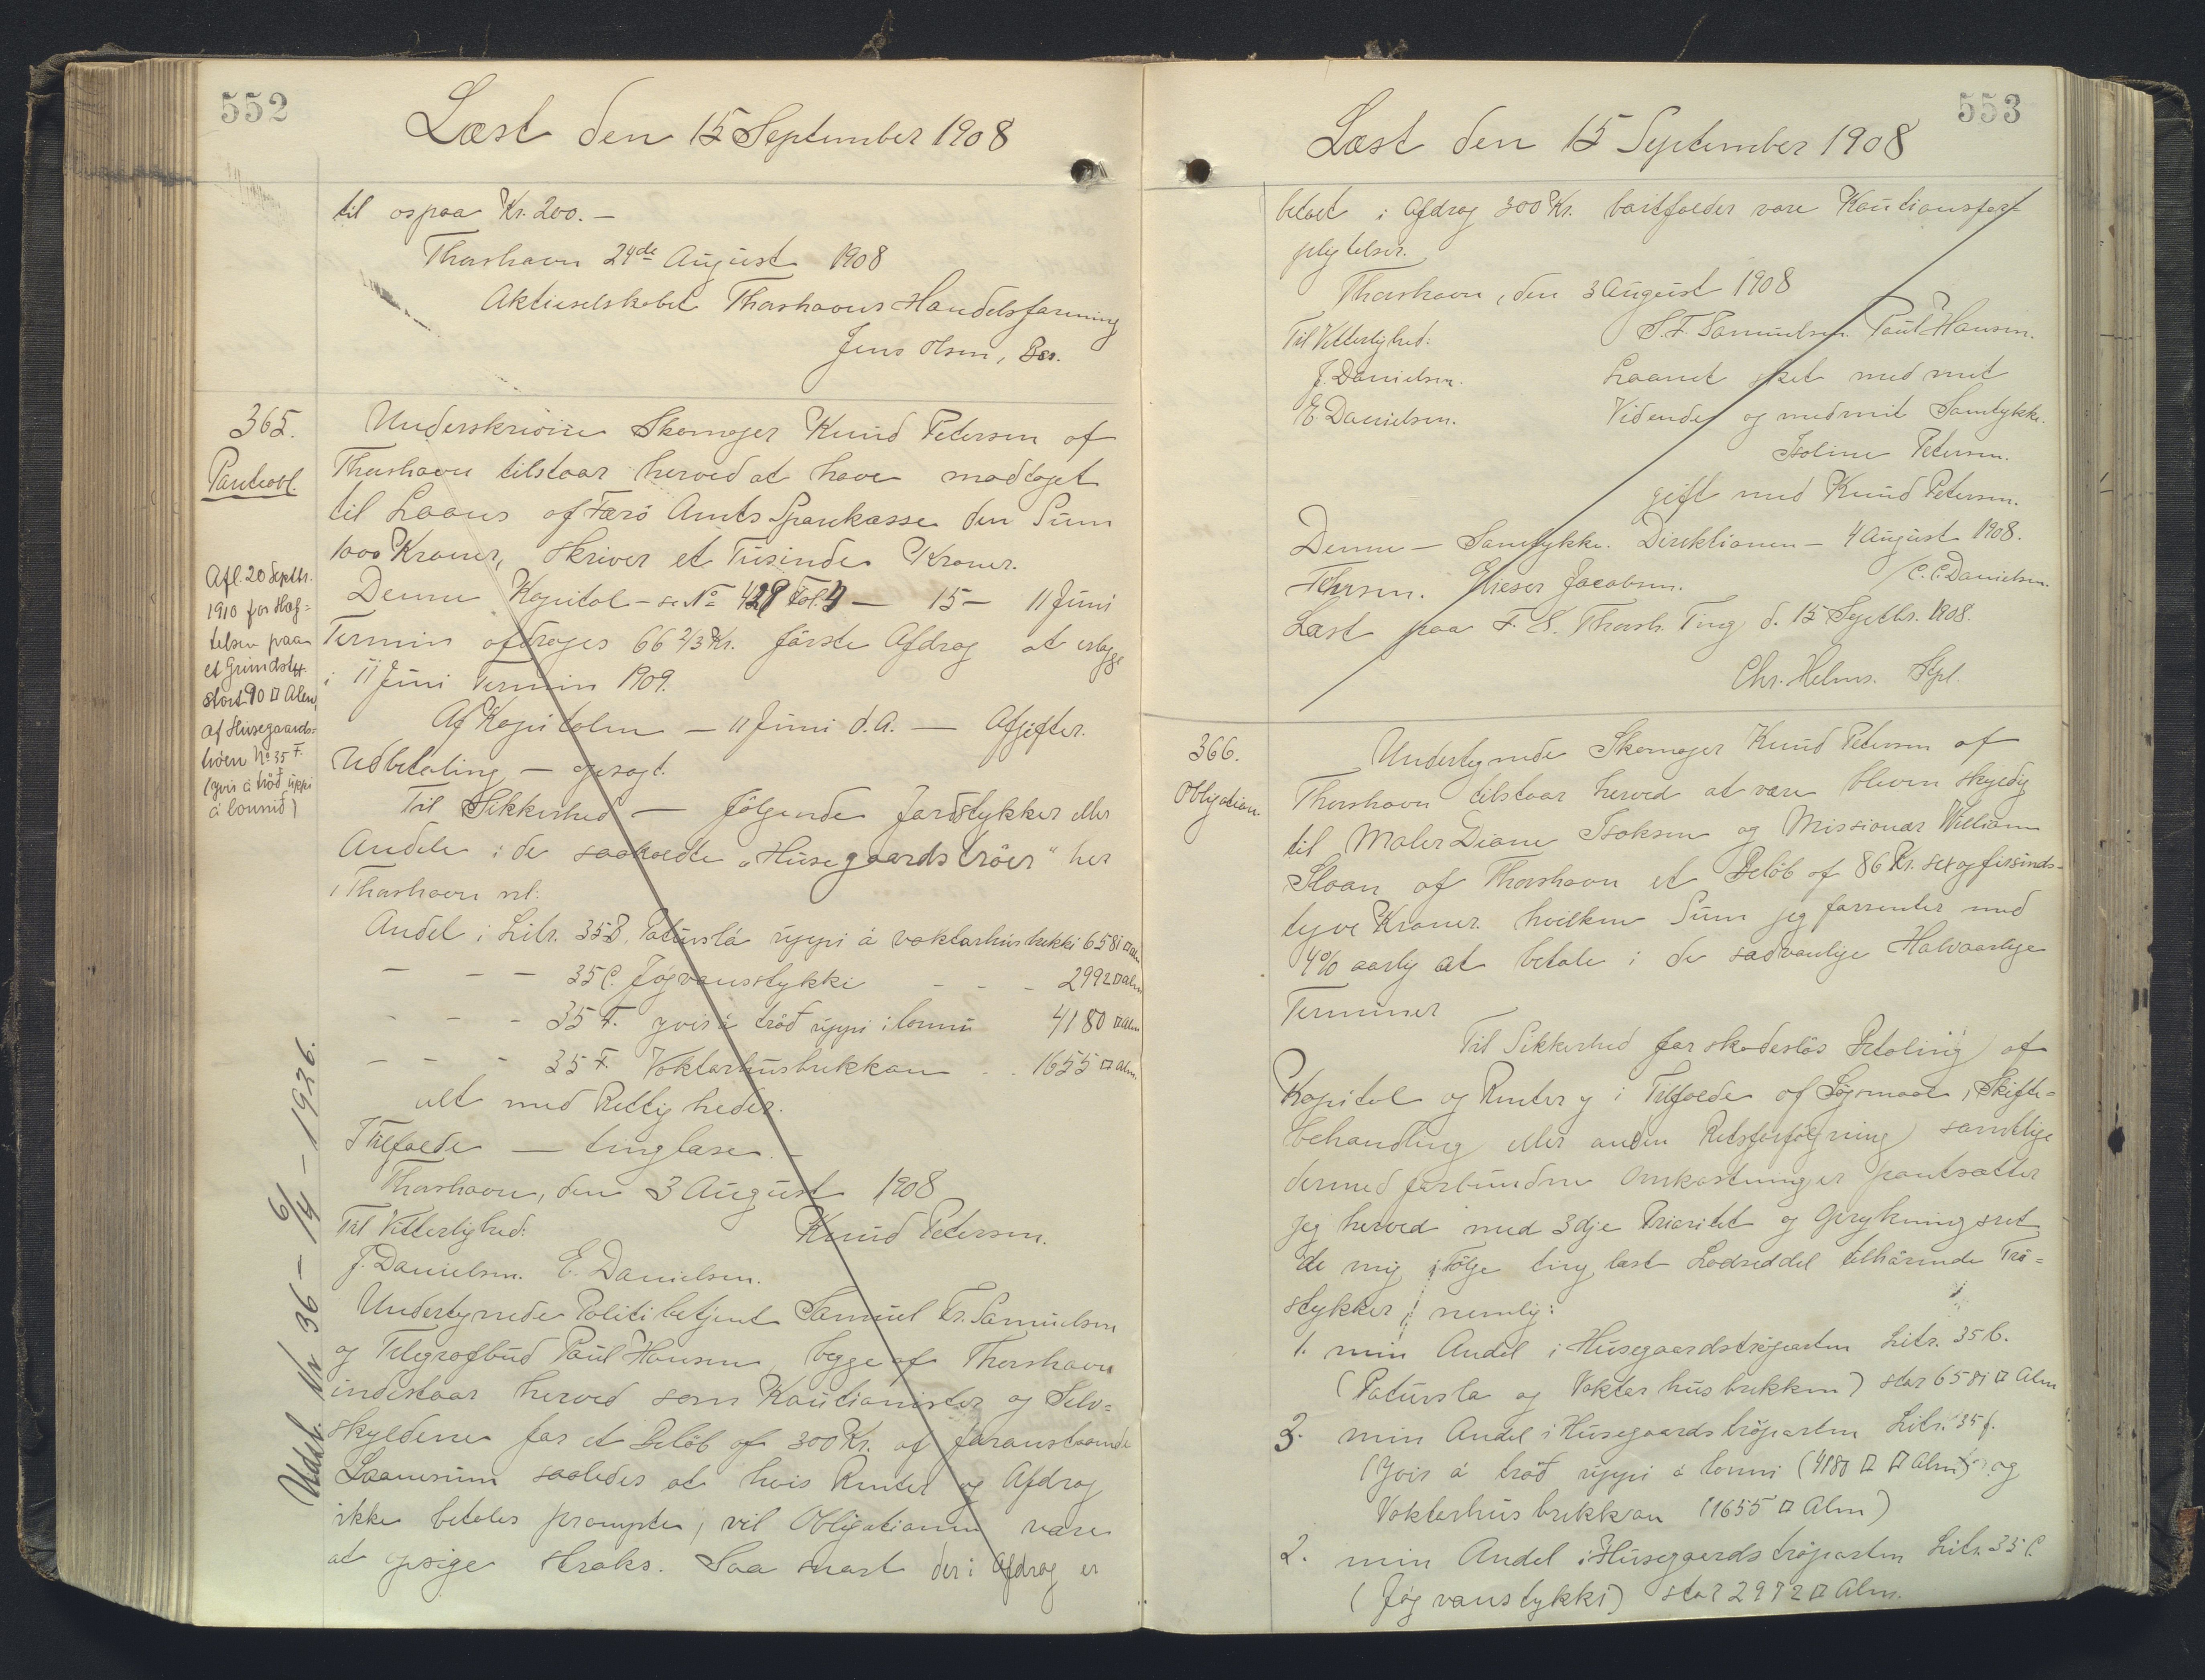 552
Læst den 15 September 1908
til os paa Kr. 200.-
Thorshavn 24de August 1908
Aktieselskabet Thorshavns Handelsforening
Jens Olsen, Bes.
365.
Panteobl.
Underskrivne Skomager Knud Petersen af
Thorshavn tilstaar herved at have modtaget
til Laans af Færö Amts Sparekasse den Sum
1000 Kroner, skriver et Tusinde Kroner.
Denne Kapital - se No 429 Fol. 4 - 15 - 11 Juni
Termin afdrages 66 2/3 Kr. förste Afdrag at erlægge
i 11 Juni Termin 1909.
Af Kapitalen - 11 Juni d.A. - Afgifter.
Udbetaling - opsagt.
Til Sikkerhed - fölgende Jordstykker eller
Andele i de saakaldte "Husegaardströer" her
i Thorshavn nl:
Andel i Litr. 35B. Patursla uppi á vaktarhusbrekki 6581 □ Aln
- - - 35C. Jógvansstykki - - - 2992 □ Aln
- - - 35F. yvir á tröð uppi i lonni 4180 □ Aln
- - - 35F. Vaktarhusbrekkan - - 1655 □ Aln.
alt med Rettigheder.
I Tilfælde - tinglæse.-
Thorshavn, den 3 August 1908
Til Vitterlighed: Knud Petersen.
J. Danielsen. E. Danielsen.
Undertegnede Politibetjent Samuel Fr. Samuelsen
og Telegrafbud Paul Hansen, begge af Thorshavn
indestaar herved som Kautionister og Selv=
skyldnere for et Belöb af 300 Kr. af foranstaaende
Laanesum saaledes at hvis Renter og Afdrag
ikke betales prompte, vil Obligationen være
at opsige straks. Saa snart der i Afdrag er
Afl. 20 Septbr.
1910 for Hæf=
telsen paa
et Grundst.
stort 90 □ Alen,
af Husegaards=
tröen No 35 F.
(yvir á tröð uppi
á lonnið)
Udsl. Nr 36 - 6/14 - 1926.
553
Læst den 15 September 1908
betalt i Afdrag 300 Kr. bortfalder vore Kautionsfor=
pligtelser.
Thorshavn, den 3 August 1908
Til Vitterlighed: S. F. Samuelsen. Paul Hansen.
J. Danielsen. Laanet sket med mit
E. Danielsen. Vidende og med mit Samtykke.
Isoline Petersen.
gift med Knud Petersen.
Denne - Samtykke. Direktionen - 4 August 1908.
Elieser Jacobsen. C. C. Danielsen.
Læst paa F. S. Thorsh. Ting d. 15 Septbr. 1908.
Chr. Helms. Spl.
366.
Obligation.
Undertegnede Skomager Knud Petersen af
Thorshavn tilstaar herved at være bleven skyldig
til Maler Diane Isaksen og Missionær William
Sloan af Thorshavn et Belöb af 86 Kr. sex og firsinds=
tyve Kroner. hvilken Sum jeg forrenter med
4% aarlig at betale i de sædvanlige Halvaarlige
Terminer
Til Sikkerhed for skadeslös Betaling af
Kapital og Renter og i Tilfælde af Sögsmaal, Skifte=
behandling eller anden Retsforfölgning samtlige
dermed forbundne Omkostninger pantsætter
jeg herved med 3dje Prioritet og Oprykningsret
de mig ifölge tinglæst Lodseddel tilhörende Trö=
stykker, nemlig:
1. min Andel i Husegaardströparten Litr. 35 b.
(Patursla og Vaktarhusbrekken) stor 6581 □ Alen
3. min Andel i Husegaardströparten Litr. 35 f.
(Yvir á tröð uppi á lonni (4180 □ □ Alen) og
Vaktarhusbrekkan (1655 □ Alen)
2. min Andel i Husegaardströparten Litr. 35 C.
(Jógvanstykki) stor 2992 □ Alen.